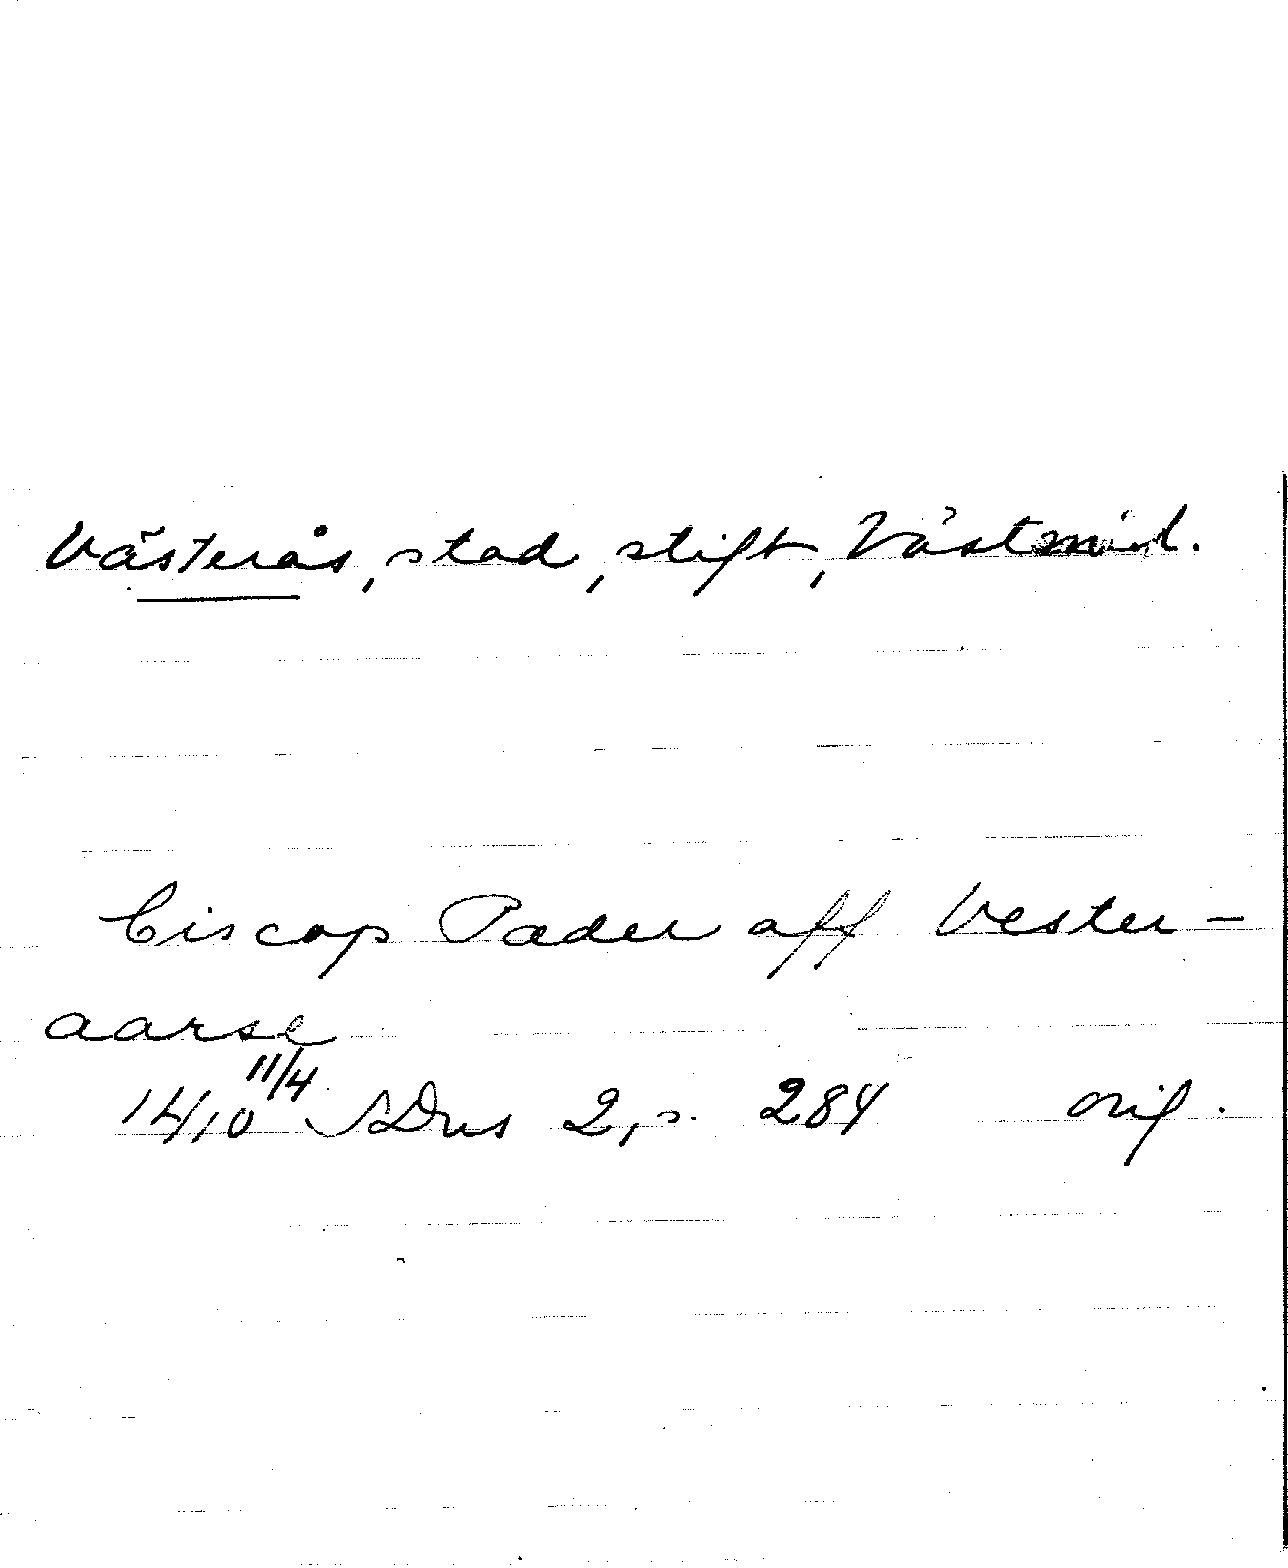 Västerås, stad, stift, Västmanl.
Biscop Pæder aff Vester-
aarse
1410 11/4 SDns 2, s. 284 orig.